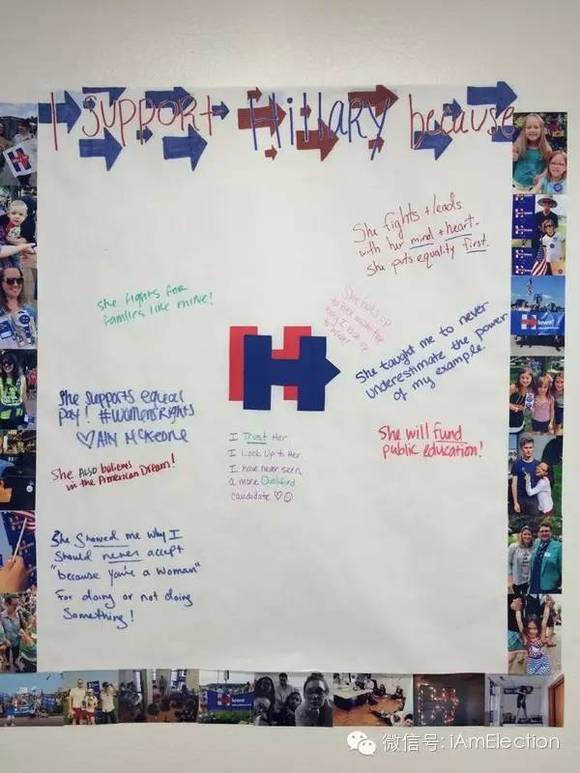 I support Hillary because
She fights + leads
with her mind + heart.
She puts equality first.
She fights for
families like mine!
She taught me to never
underestimate the power
of my example.
She supports equal
pay! #WomensRights
♡ Ally McKeone
I Trust Her
I Look Up to Her
I have never seen
a more Qualified
candidate ♡☺
She will fund
public education!
She Also believes
in the American Dream!
She Showed me why I
Should never accept
"because you're a woman"
For doing or not doing
Something!
微信号: iAmElection